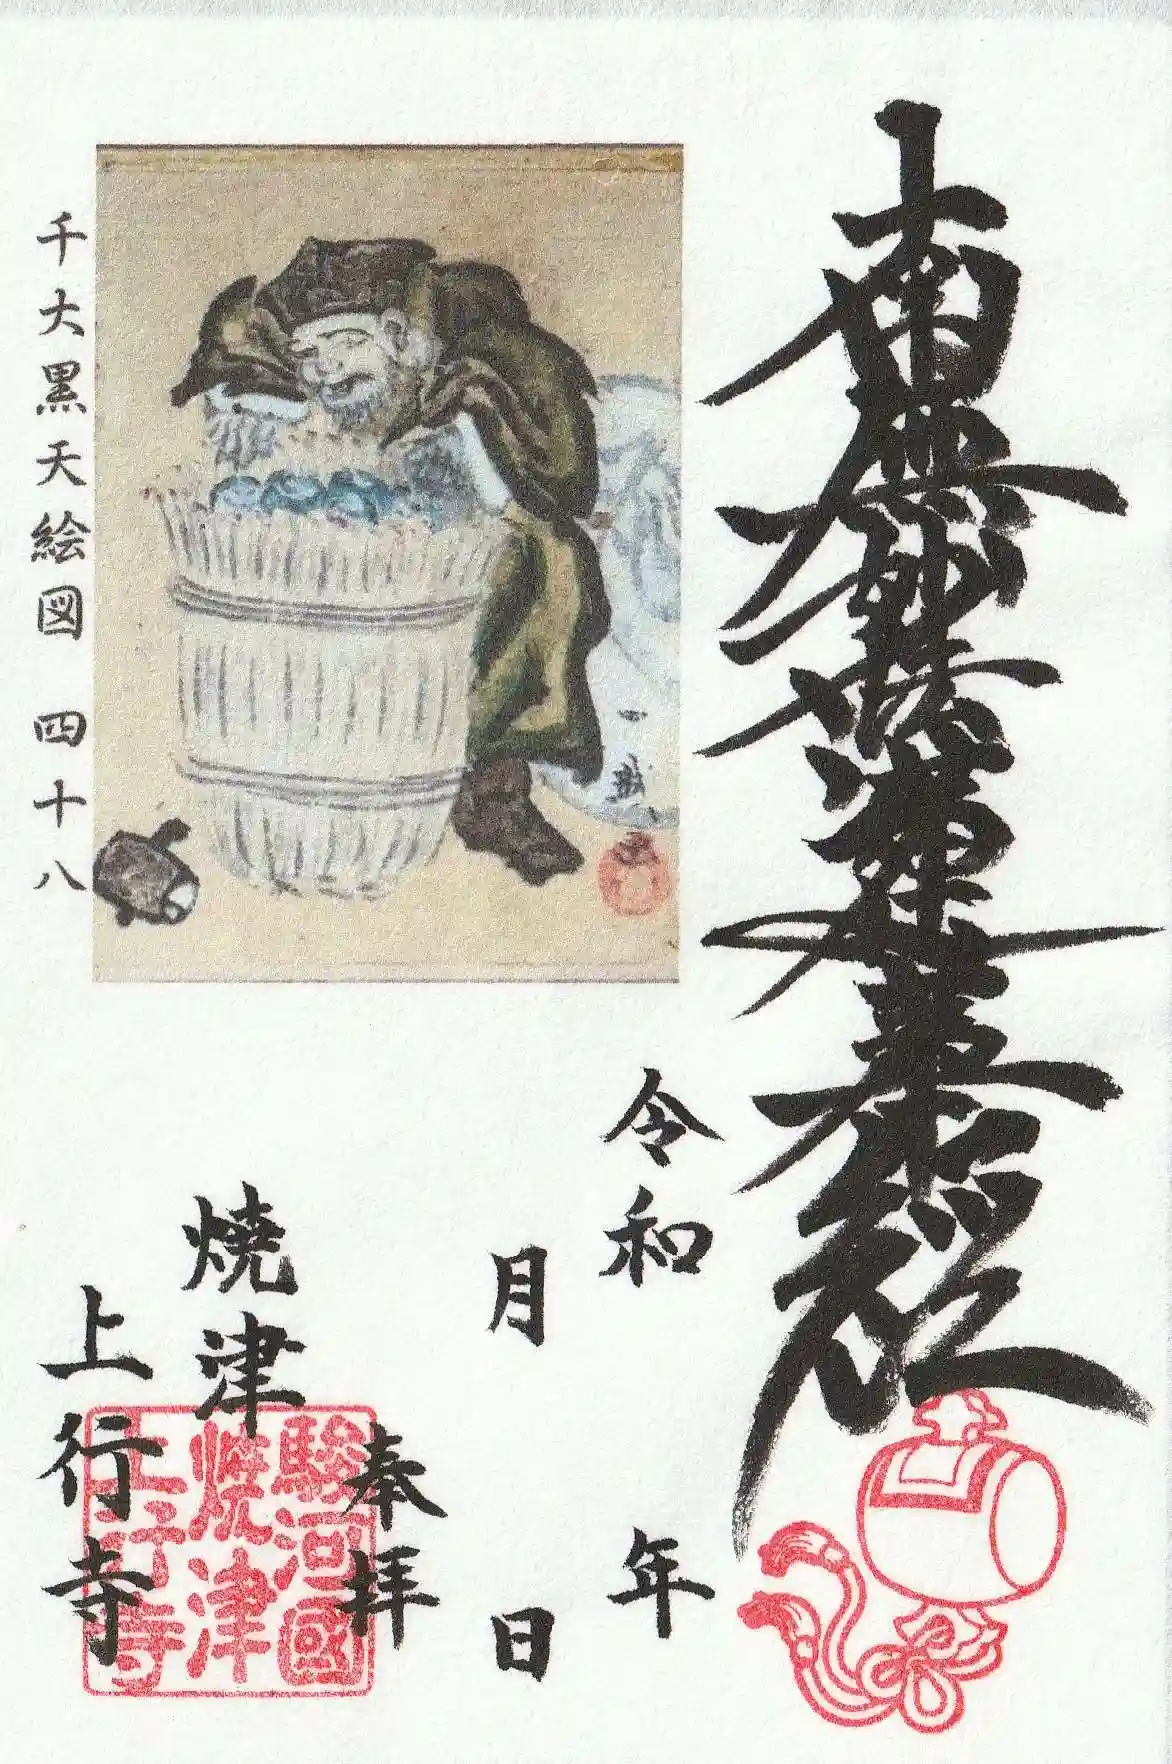 南無妙法蓮華経
千大黒天絵図 四十八
令和 年
月 日
奉拝
焼津
上行寺
駿河國
焼津
上行寺